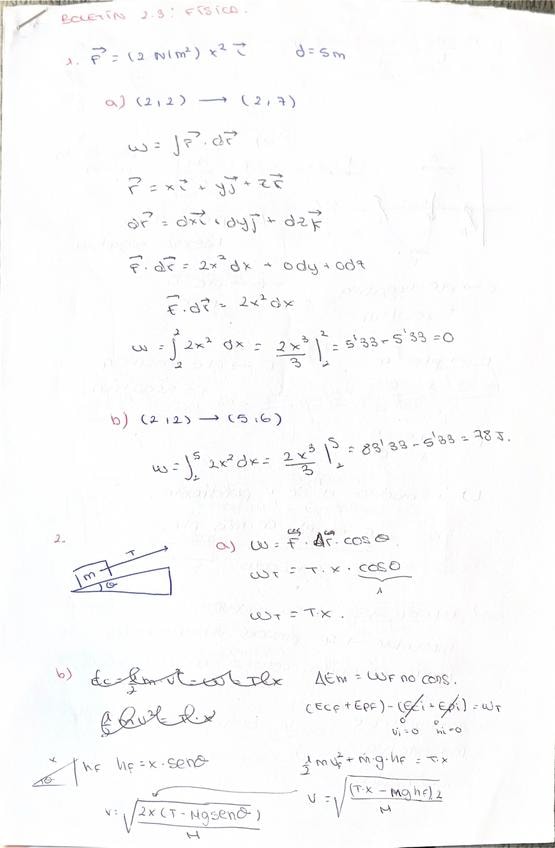 BOLETÍN 2.3: FÍSICA.
1. F⃗ = (2 N/m²) x² i⃗ d=5m
a) (2,2) → (2,7)
w = ∫F⃗ · dr⃗
r⃗ = xi⃗ + yj⃗ + zk⃗
dr⃗ = dxi⃗ + dyj⃗ + dzk⃗
F⃗ · dr⃗ = 2x² dx + 0dy + 0dz
F⃗ · dr⃗ = 2x² dx
w = ∫₂² 2x² dx = 2x³/3 |₂² = 5'33 - 5'33 = 0
b) (2,2) → (5,6)
w = ∫₂⁵ 2x² dx = 2x³/3 |₂⁵ = 83'33 - 5'33 = 78 J.
2. a) w = F⃗ · Δr⃗ · cos θ
T
m
θ
w_T = T · x · cos θ
1
w_T = T·x.
b) ΔEm = w_F no cons.
(Ecf + Epf) - (Eci + Epi) = w_T
0 0
vi=0 hi=0
x
θ
hf hf = x · senθ ½ m vf² + m·g·hf = T·x
v = √(2x(T - Mg senθ)/M) v = √((T·x - Mghf)2/M)